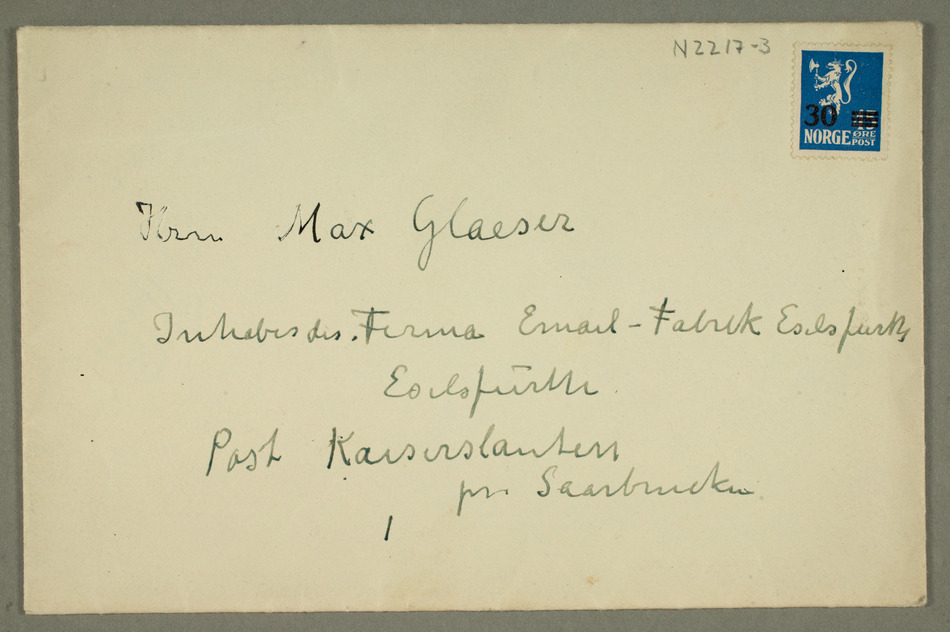 N2217-3
30 45
NORGE ØRE POST
Herrn Max Glaeser
Inhaber der Firma Email-Fabrik Eselsfürth
Eselsfürth
Post Kaiserslautern
pr. Saarbrücken